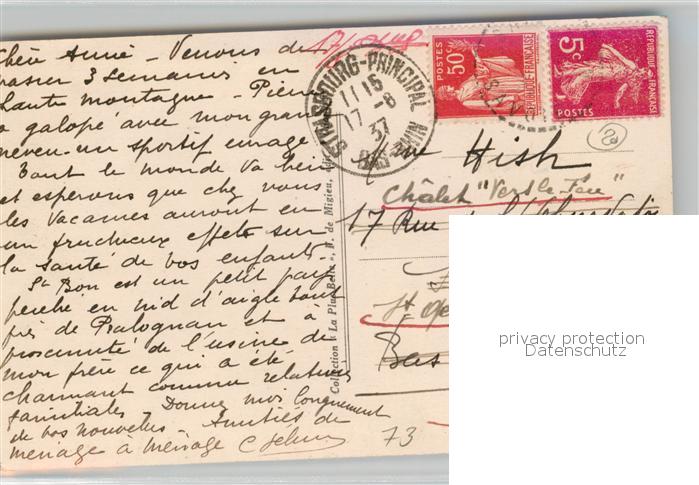 Chère Année - Venons de
passer 3 semaines en
haute montagne - Pierre
a galopé avec mon grand
neveu - un sportif enragé
Tout le monde va bien
et espérons que chez vous
les vacances auront eu
un fructueux effet sur
la santé de vos enfants -
St Bon est un petit pays
perché en nid d'aigle tout
près de Pralognan et à
proximité de l'usine de
mon frère ce qui a été
charmant comme relations
familiales - Donnez moi longuement
de vos nouvelles - Amitiés de
ménage à ménage
Collection "La Plus Belle", H. de Migieu,
STRASBOURG-PRINCIPAL
11 15
17-8
37
BAS-RHIN
POSTES 50c REPUBLIQUE FRANÇAISE
5c REPUBLIQUE FRANÇAISE
POSTES
Hish
Châlet "Vers le
17 Rue
Bas
73
privacy protection
Datenschutz